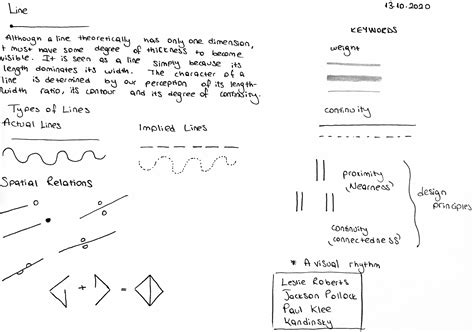 Line
13.10.2020
Although a line theoretically has only one dimension,
it must have some degree of thickness to become
visible. It is seen as a line simply because its
length dominates its width. The character of a
line is determined by our perception of its length-
width ratio, its contour and its degree of continuity.
Types of Lines
Actual Lines
Implied Lines
Spatial Relations
+
=
KEYWORDS
weight
continuity
proximity
(Nearness)
design
principles
continuity
(connectedness)
* A visual rhythm
Leslie Roberts
Jackson Pollock
Paul Klee
Kandinsky